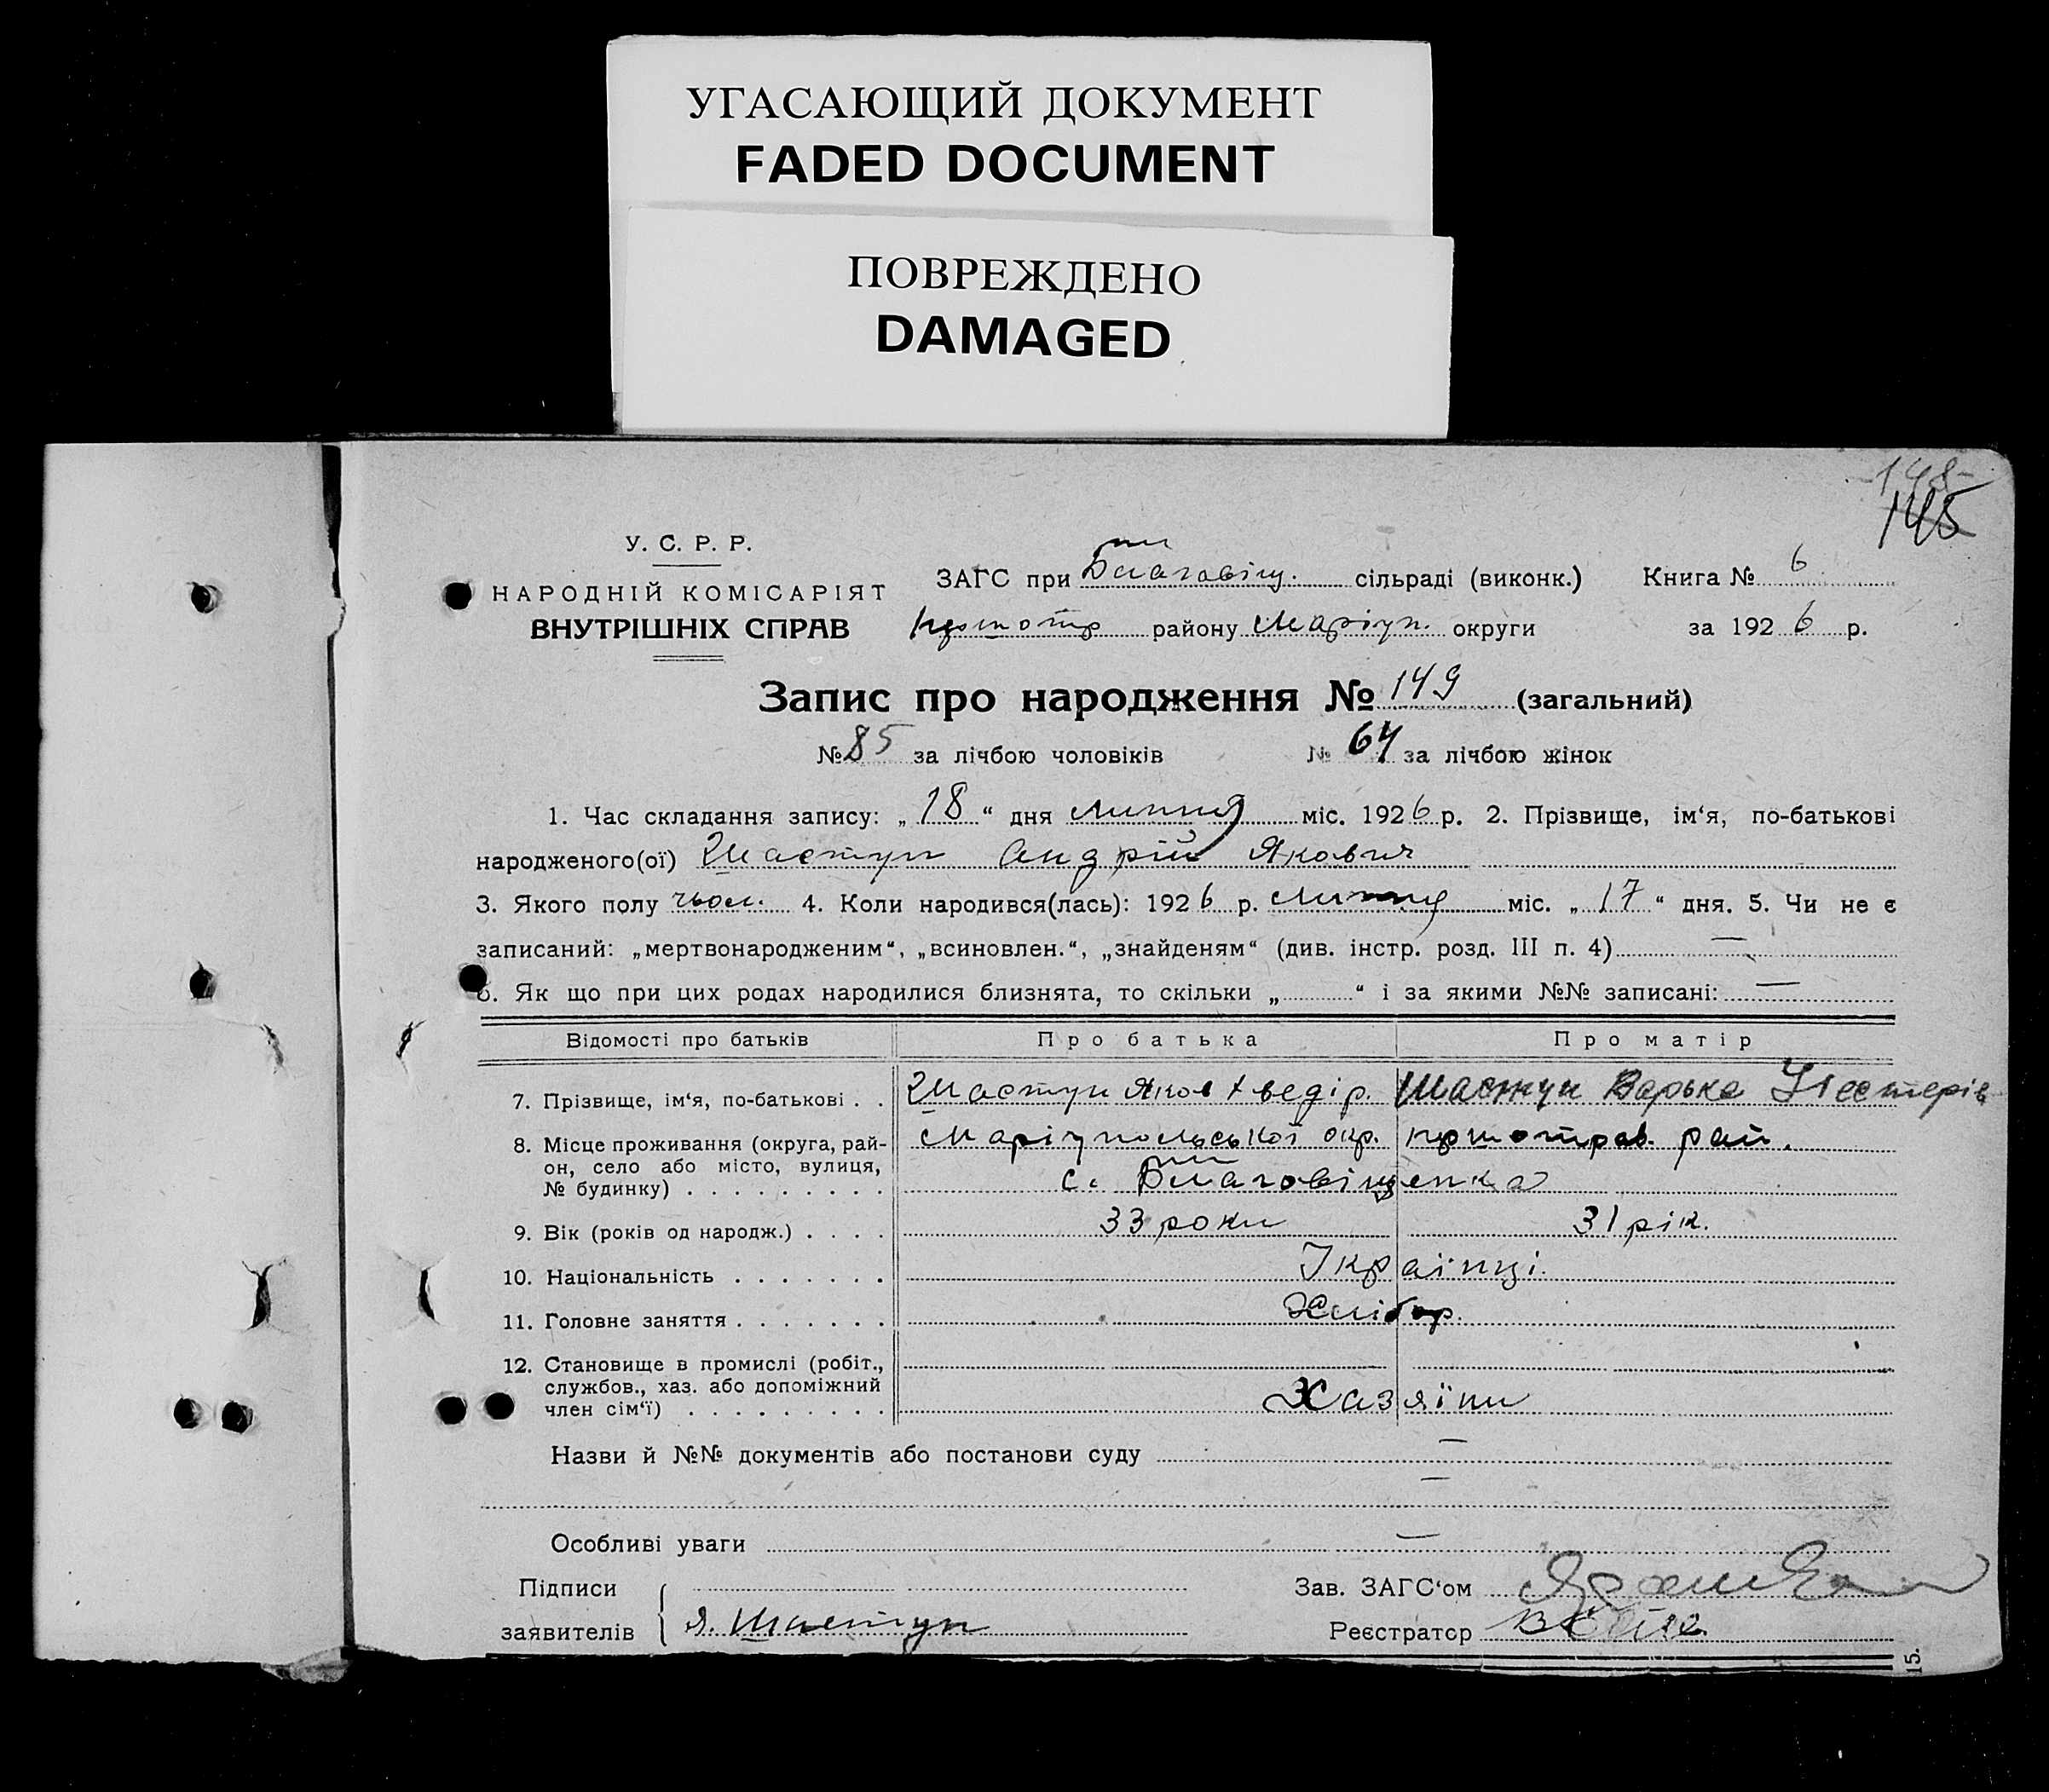 УГАСАЮЩИЙ ДОКУМЕНТ
FADED DOCUMENT
ПОВРЕЖДЕНО
DAMAGED
145
У. С. Р. Р.
НАРОДНІЙ КОМІСАРІЯТ
ВНУТРІШНІХ СПРАВ
ЗАГС при Благовіщ. сільраді (виконк.) Книга № 6
району Маріуп. округи за 1926 р.
Запис про народження № 149 (загальний)
№ 85 за лічбою чоловіків № 64 за лічбою жінок
1. Час складання запису: „18“ дня липня міс. 1926 р. 2. Прізвище, ім‘я, по-батькові
народженого(ої) Шастун Андрій Якович
3. Якого полу чьол. 4. Коли народився(лась): 1926 р. липня міс. „17“ дня. 5. Чи не є
записаний: „мертвонародженим“, „всиновлен.“, „знайденям“ (див. інстр. розд. III п. 4) —
6. Як що при цих родах народилися близнята, то скільки „ “ і за якими №№ записані: —
Відомості про батьків Про батька Про матір
7. Прізвище, ім‘я, по-батькові . . Шастун Яков Хведір. Шастун Варька Нестерів
8. Місце проживання (округа, рай- Маріупольської окр. рай.
он, село або місто, вулиця, с. Благовіщенка
№ будинку) . . . . . . . . .
9. Вік (років од народж.) . . . . 33 роки 31 рік.
10. Національність . . . . . . . Українці.
11. Головне заняття . . . . . . . Хлібор.
12. Становище в промислі (робіт.,
службов., хаз. або допоміжний
член сім‘ї) . . . . . . . . . Хазяїни
Назви й №№ документів або постанови суду —
—
Особливі уваги —
Підписи Зав. ЗАГС‘ом
заявителів Я. Шастун Реєстратор
15.